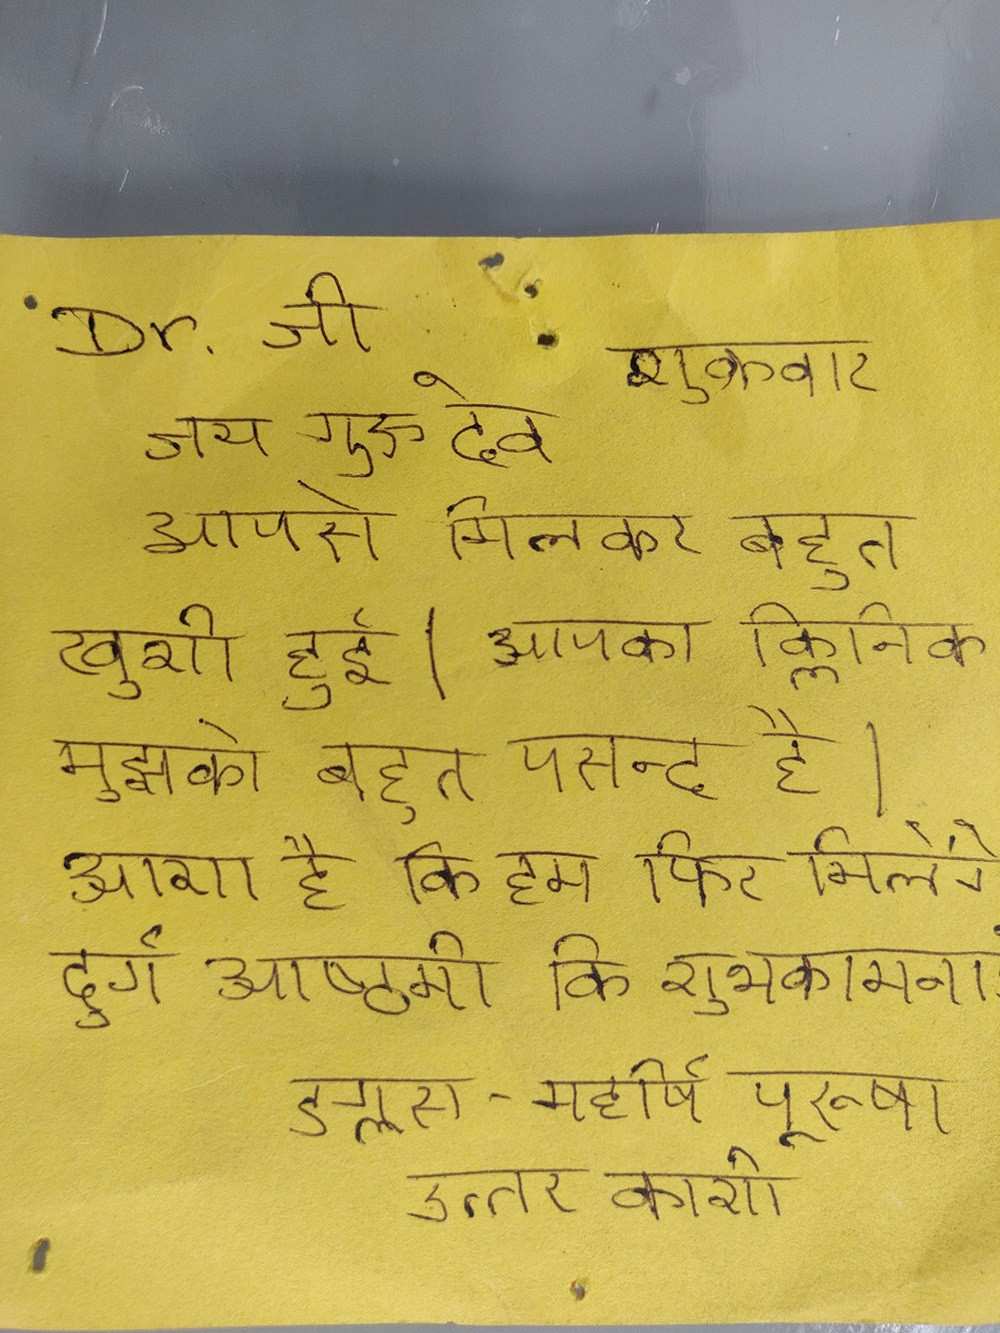 Dr. जी
शुक्रवार
जय गुरु देव
आपसे मिलकर बहुत
खुशी हुई | आपका क्लिनिक
मुझको बहुत पसन्द है |
आशा है कि हम फिर मिलेंगे
दुर्ग आष्ठमी कि शुभकामना
डग्लस - महर्षि पूरूषा
उत्तर काशी